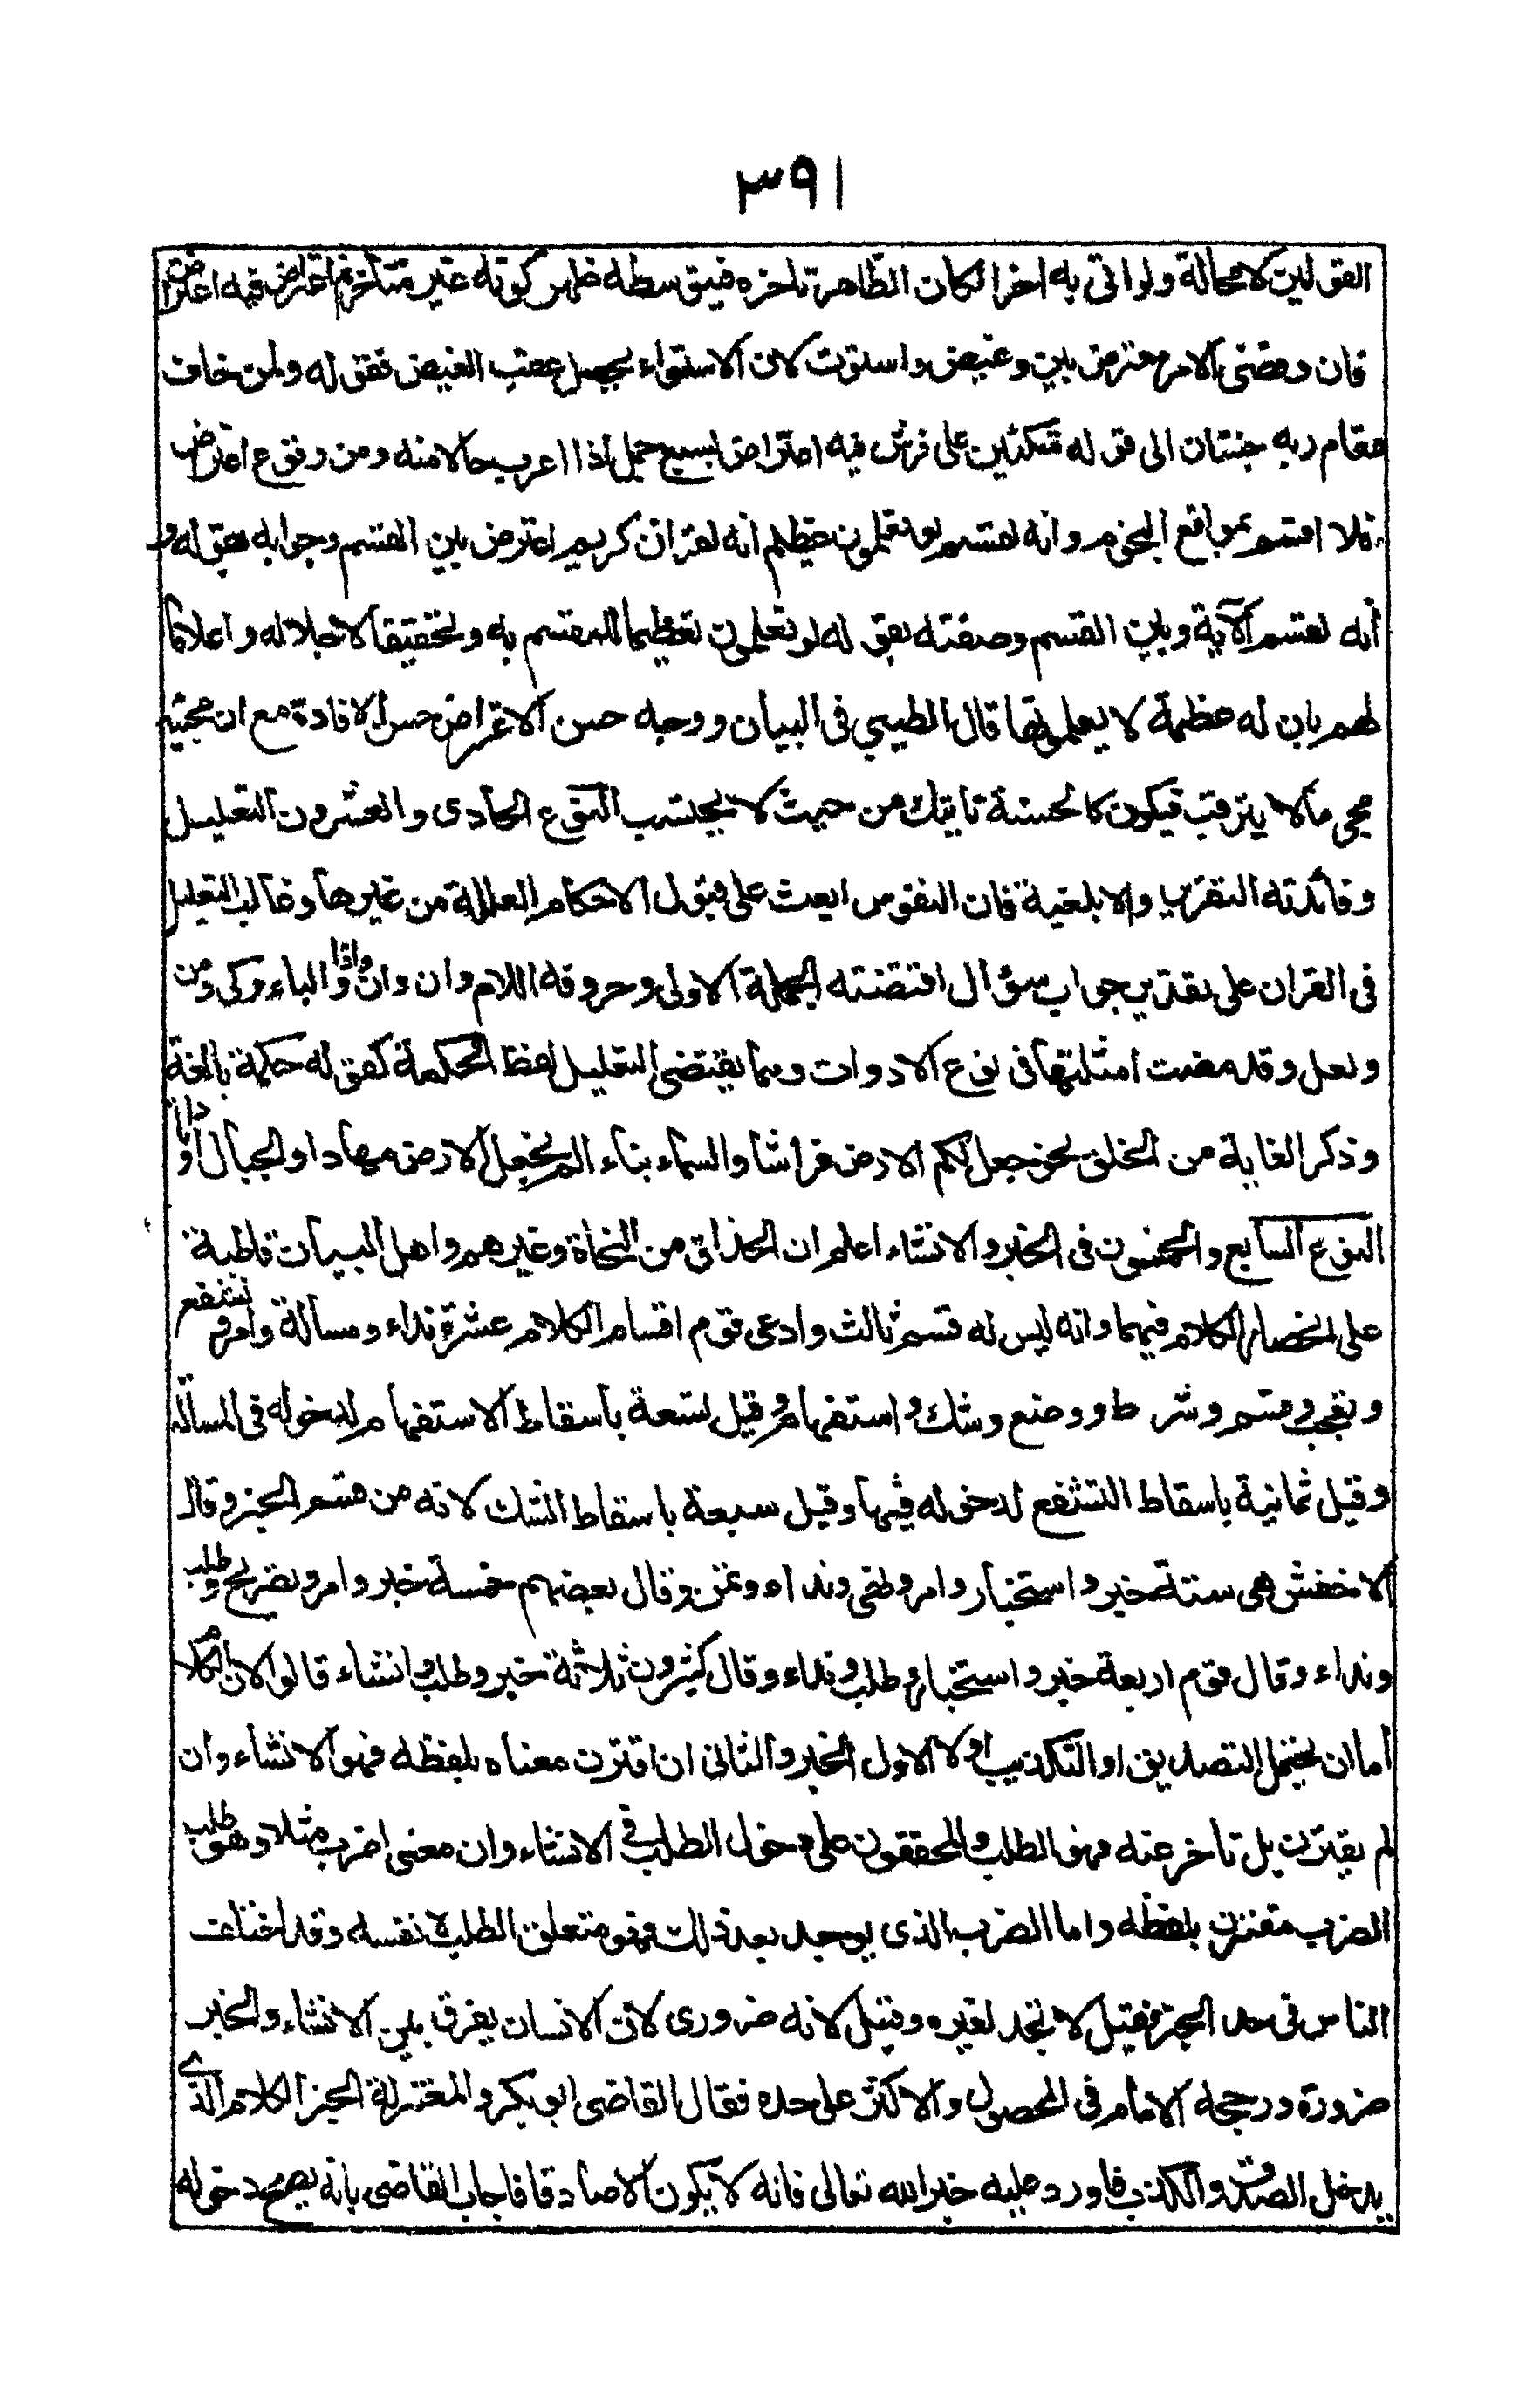 ٣٩١
القولين لا محالة ولو اتى به اخرا لكان الظاهر تاخره فبتوسطه ظهر كونه غير متأخر ثم اعتراض فيه اعتراض
فان وقضى الامر معترض بين وغيض واستوت لان الاستواء يحصل عقب الغيض فقوله ولمن خاف
مقام ربه جنتان الى قوله متكئين على فرش فيه اعتراض بسبع جمل اذا اعرب حالا منه ومن وقوع اعتراض
فلا اقسم بمواقع النجوم وانه لقسم لو تعلمون عظيم انه لقران كريم اعترض بين القسم وجوابه بقوله و
أنه لقسم الآية وبين القسم وصفته بقوله لو تعلمون تعظيما للمقسم به وتحقيقا لاجلاله واعلاما
لهم بان له عظمة لا يعلمونها قال الطيبي في البيان ووجه حسن الاعتراض حسن الافادة مع ان مجيئه
مجئ مالا يترقب فيكون كالحسنة تاتيك من حيث لا تحتسب النوع الحادى والعشرون التعليل
وفائدته التقرير والابلغية فان النفوس ابعث على قبول الاحكام المعللة من غيرها وغالب التعليل
فى القران على تقدير جواب سؤال اقتضته الجملة الاولى وحروفه اللام وان وان واذ واذا والباء وكى ومن
ولعل وقد مضت امثلتها فى نوع الادوات ومما يقتضى التعليل لفظ الحكمة كقوله حكمة بالغة
وذكر الغاية من الخلق نحو جعل لكم الارض فراشا والسماء بناء الم نجعل الارض مهادا والجبال اوتادا
النوع السابع والخمسون فى الخبر والانشاء اعلم ان الحذاق من النحاة وغيرهم واهل البيان قاطبة
على انحصار الكلام فيهما وانه ليس له قسم ثالث وادعى قوم اقسام الكلام عشرة نداء ومسألة وامر و تشفع
وتعجب وقسم وشرط ووضع وشك واستفهام وقيل تسعة باسقاط الاستفهام لدخوله فى المسألة
وقيل ثمانية باسقاط التشفع لدخوله فيها وقيل سبعة باسقاط الشك لانه من قسم الخبر وقال
الاخفش هى ستة خبر واستخبار وامر ونهى ونداء وتمن وقال بعضهم خمسة خبر وامر وتصريح وطلب
ونداء وقال قوم اربعة خبر واستخبار وطلب ونداء وقال كثيرون ثلاثة خبر وطلب وانشاء قالوا لان الكلام
اما ان يحتمل التصديق او التكذيب او لا الاول الخبر والثانى ان اقترن معناه بلفظه فهو الانشاء وان
لم يقترن بل تاخر عنه فهو الطلب والمحققون على دخول الطلب فى الانشاء وان معنى اضرب مثلا وهو طلب
الضرب مقترن بلفظه واما الضرب الذى يوجد بعد ذلك فهو متعلق الطلب لا نفسه وقد اختلف
الناس فى حد الخبر فقيل لا يحد لعسره وقيل لانه ضرورى لان الانسان يفرق بين الانشاء والخبر
ضرورة ورجحه الامام فى المحصول والاكثر على حده فقال القاضى ابو بكر والمعتزلة الخبر الكلام الذى
يدخله الصدق والكذب فاورد عليه خبر الله تعالى فانه لا يكون الا صادقا فاجاب القاضى بانه يصح دخوله